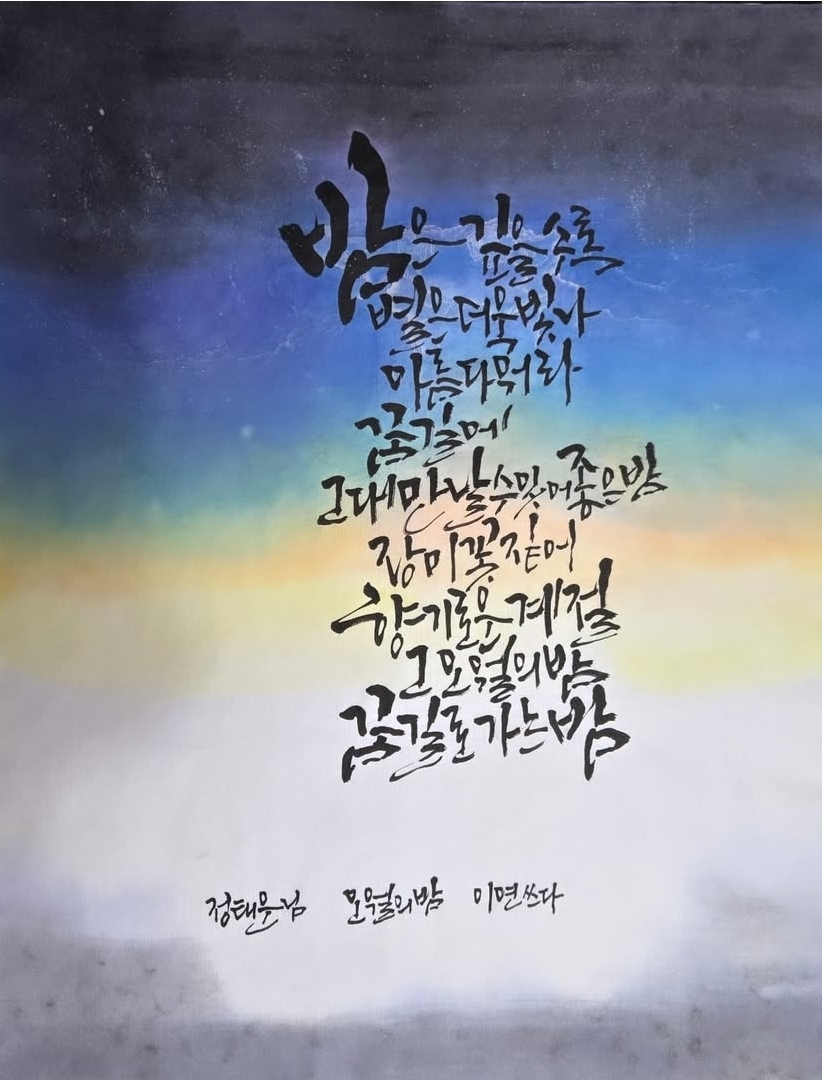 밤은 깊을수록
별은 더욱 빛나
아름다워라
꿈길에
그대 만날 수 있어 좋은 밤
장미꽃 짙어
향기로운 계절
그 오월의 밤
꿈길로 가는 밤
정태운님 오월의 밤 이연쓰다